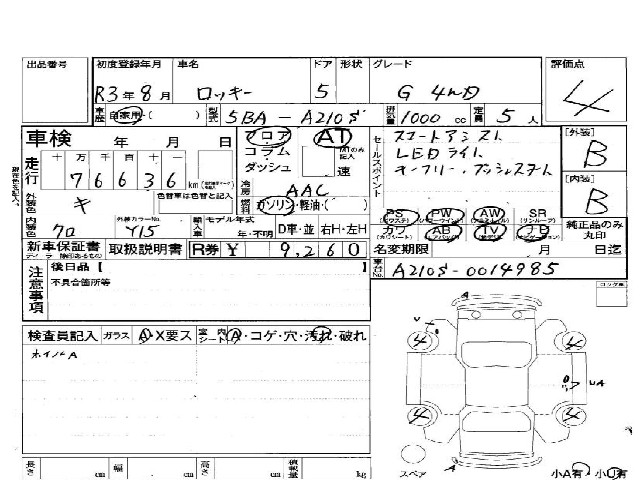 出品番号 初度登録年月 車名 ドア 形状 グレード 評価点
R3年8月 ロッキー 5 G 4WD 4
車歴 自家用・( ) 型式 5BA-A210S 排気量 1000 cc 定員 5人
車検 年 月 日 フロア コラム ダッシュ AT 速 セールスポイント スマートアシスト [外装] B
走行 十 万 千 百 十 一 LEDライト
76636 km
冷房 AAC [内装] B
外装色 キ 色替車は色と記入 燃料 ガソリン・軽油・( ) PS PW AW SR
内装色 クロ 外装カラーNo. Y15 輸入車 モデル年式 年・不明 D車・並 右H・左H カワ AB TV ナビ 純正品のみ丸印
新車保証書 取扱説明書 R券 ¥ 9,260 名変期限 月 日迄
注意事項 後日品【 車台No. A210S-0014985
不具合箇所等
検査員記入 ガラス A・X要ス 室内シート A・コゲ・穴・汚れ・破れ
ホイルA
V
4 4
UA
4 4
A
スペア
長さ cm 幅 cm 高さ cm 積載量 kg 小A有・小U有